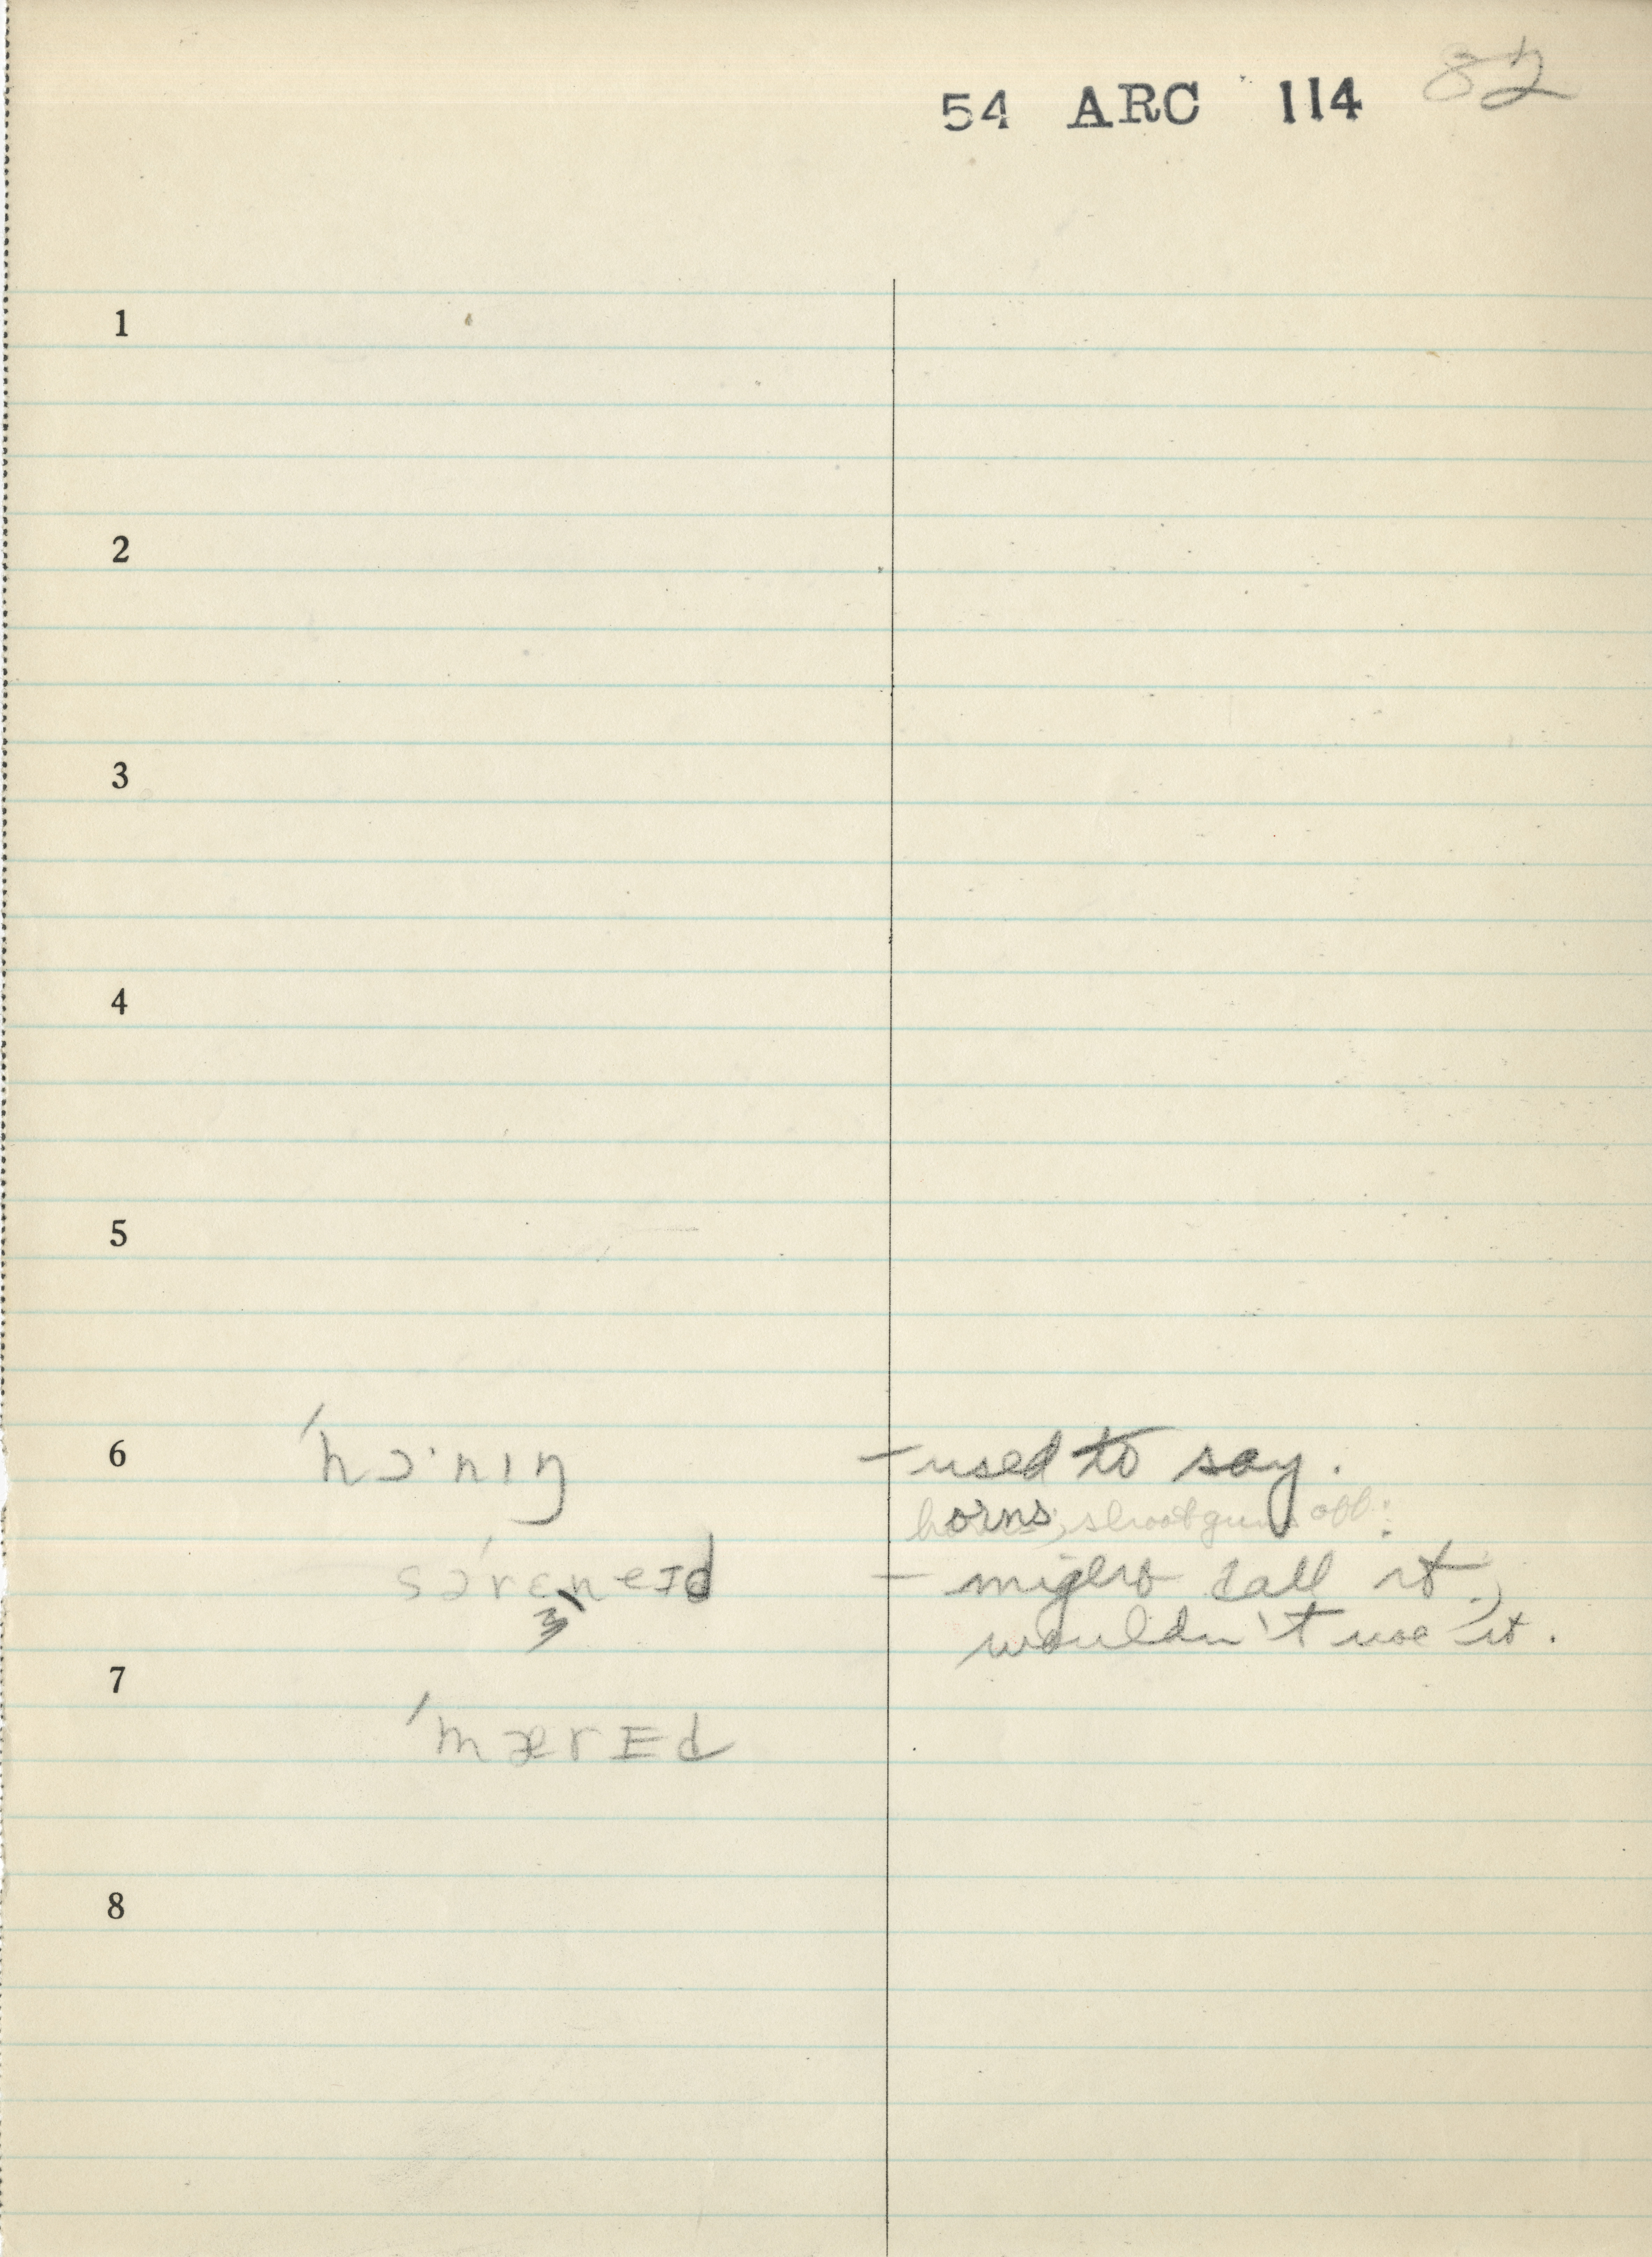 54 ARC 114 82
1
2
3
4
5
6 ˈhɔ·nıŋ - used to say.
horns, shootguns off:
- might call it,
wouldn't use it.
7
ˈmærɪd
8